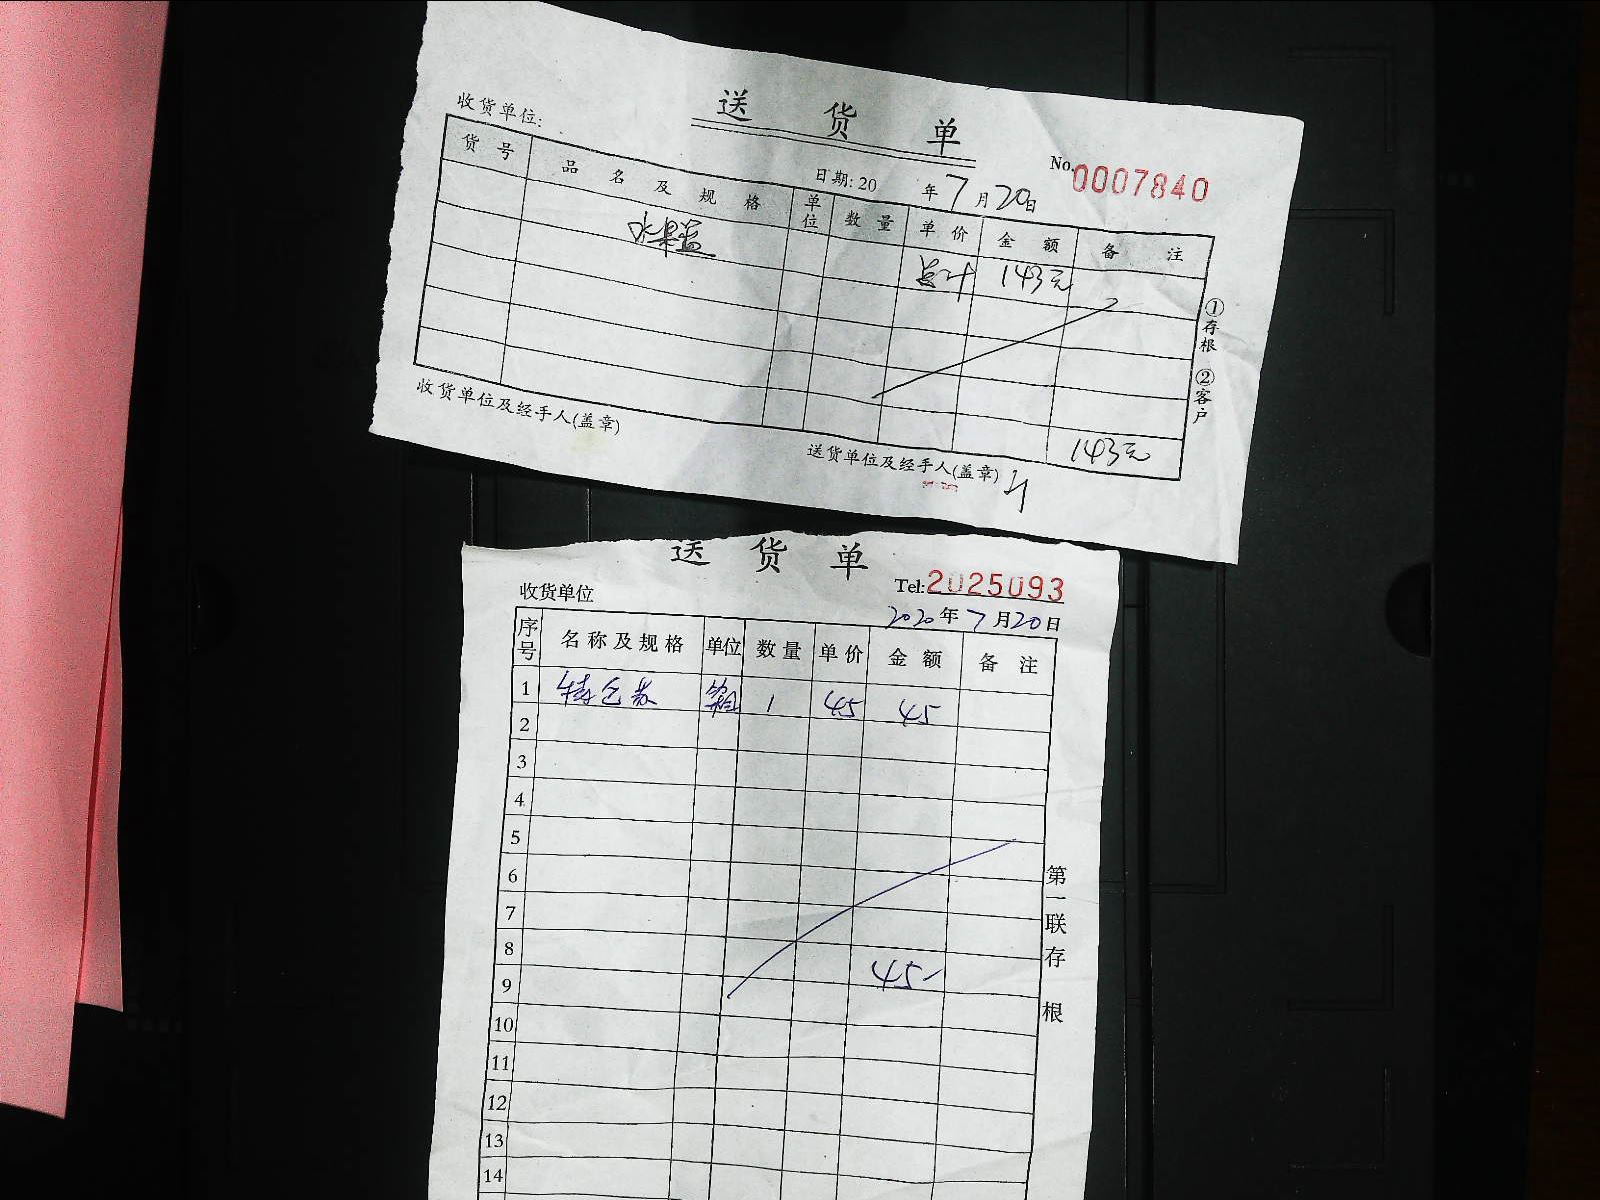 送 货 单
收货单位:
No.0007840
日期: 20 年7月20日
货 号 品 名 及 规 格 单位 数 量 单 价 金 额 备 注
水果 总计 143元
①存根 ②客户
143元
收货单位及经手人(盖章) 送货单位及经手人(盖章)
送 货 单
收货单位 Tel:2025093
2020年7月20日
序号 名 称 及 规 格 单位 数 量 单 价 金 额 备 注
1 特仑苏 箱 1 45 45
2
3
4
5
6
7
8
45-
9
10
11
12
13
14
第一联存根